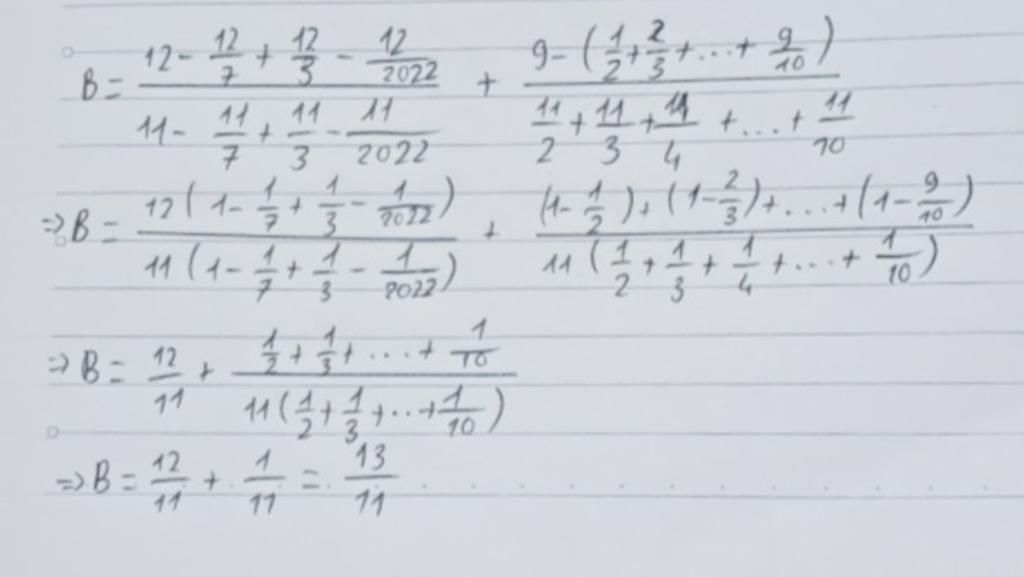 B = (12 - 12/7 + 12/3 - 12/2022)/(11 - 11/7 + 11/3 - 11/2022) + (9 - (1/2 + 2/3 + ... + 9/10))/(11/2 + 11/3 + 11/4 + ... + 11/10)
=> B = (12(1 - 1/7 + 1/3 - 1/2022))/(11(1 - 1/7 + 1/3 - 1/2022)) + ((1 - 1/2) + (1 - 2/3) + ... + (1 - 9/10))/(11(1/2 + 1/3 + 1/4 + ... + 1/10))
=> B = 12/11 + (1/2 + 1/3 + ... + 1/10)/(11(1/2 + 1/3 + ... + 1/10))
=> B = 12/11 + 1/11 = 13/11